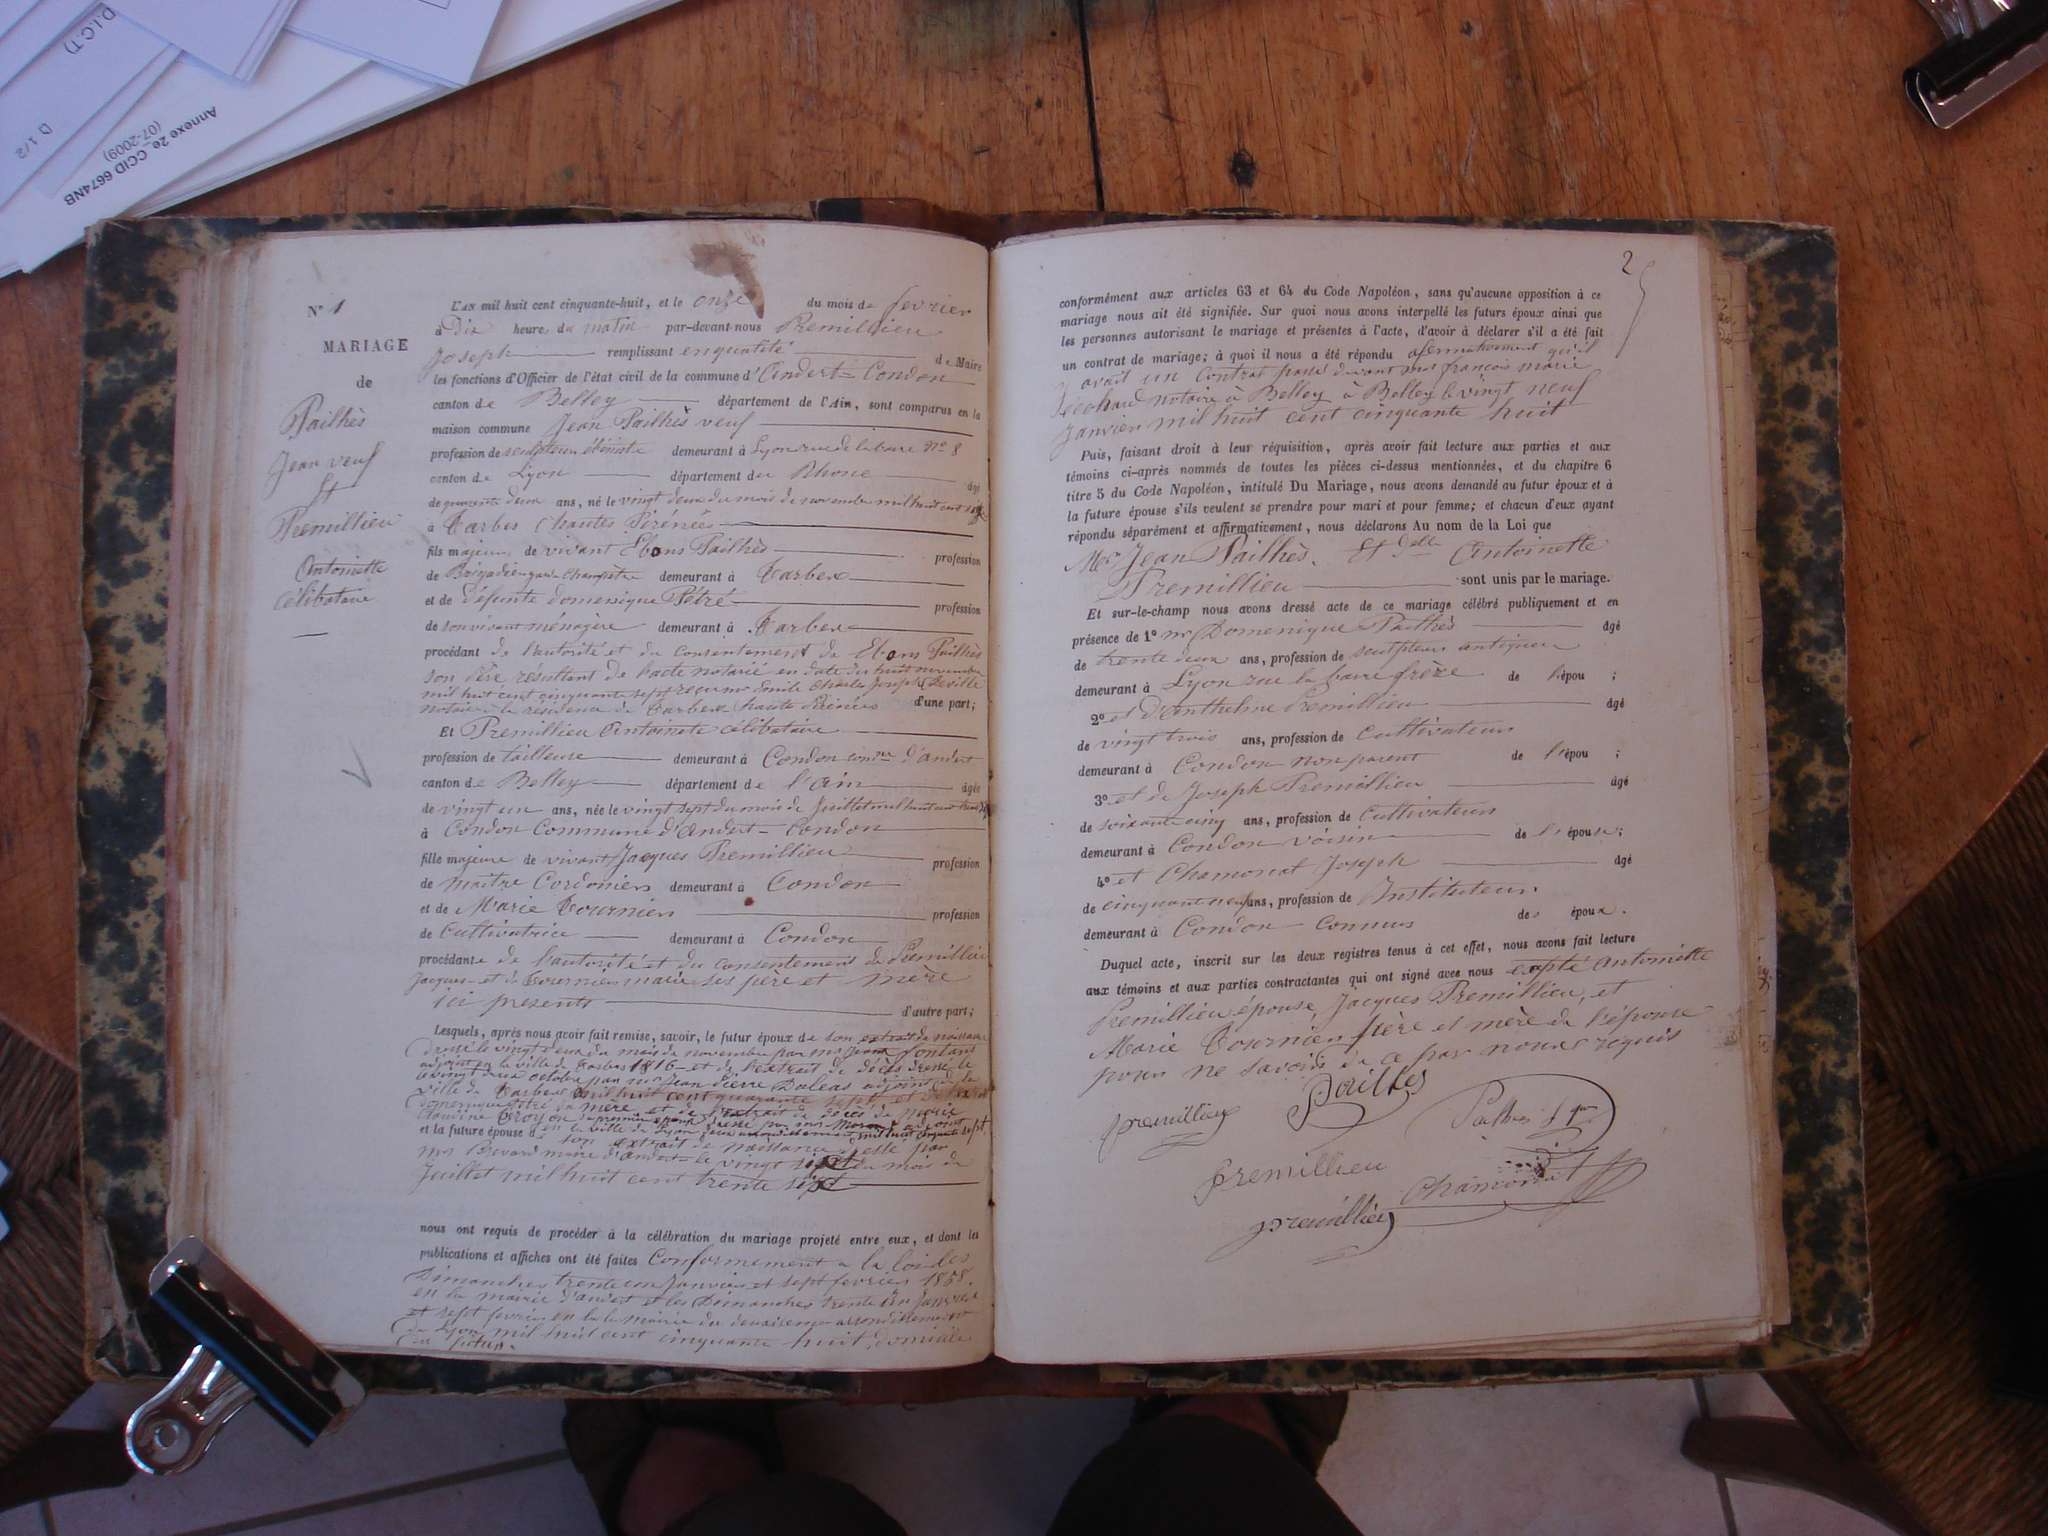 D.I.C.T)
D 1/2
Annexe 2e CCID 6674NB
(07-2009)
N° 1
MARIAGE
de
Pailhès
Jean veuf
Et
Premillieu
Antoinette
célibataire
L'AN mil huit cent cinquante-huit, et le onze du mois de fevrier
à Dix heures du matin par-devant nous Premillieu
Joseph remplissant en qualité de Maire
les fonctions d'Officier de l'état civil de la commune d'Andert-Condon
canton de Belley département de l'Ain, sont comparus en la
maison commune Jean Pailhès veuf
profession de sculpteur ébéniste demeurant à Lyon rue de la barre N° 8
canton de Lyon département du Rhone âgé
de quarante deux ans, né le vingt deux du mois de novembre mil huit cent
à Tarbes (hautes Pirénées
fils majeur de vivant Ebons Pailhès profession
de Brigadier garde champêtre demeurant à Tarbes
et de défunte domenique Pétré profession
de son vivant ménagère demeurant à Tarbes
procédant de l'autorité et du Consentement de Ebons Pailhès
son père résultant de l'acte notarié en date du huit novembre
mil huit cent cinquante sept reçu me Emile Charles Joseph Deville
notaire à la résidence de Tarbes haute Pirénées d'une part;
Et Premillieu Antoinete célibataire
profession de tailleuse demeurant à Condon comne d'andert
canton de Belley département de l'Ain âgée
de vingt un ans, née le vingt sept du mois de Juillet mil huit cent trente
à Condon Commune d'Andert-Condon
fille majeure de vivant Jacques Premillieu profession
de maitre Cordoniers demeurant à Condon
et de Marie Tourniers profession
de Cultivatrice demeurant à Condon
procédante de l'autorité et du consentement de Premillieu
Jacques et de Tournier marie ses père et mère
ici présents d'autre part;
Lesquels, après nous avoir fait remise, savoir, le futur époux de son extrait de naissance
dressé le vingt deux du mois de novembre par mr Jean fontans
adjoint de la ville de Tarbes 1816 et de l'extrait de décès dressé le
vingt deux octobre par mr Jean Pierre Daleas adjoint de la
ville de Tarbes mil huit cent quarante sept
domenique Pétré sa mère et de l'extrait de décès de marie
claudine Troyon
et la future épouse de son extrait de naissance
par
mr maire d'andert le vingt sept du mois de
Juillet mil huit cent trente sept
nous ont requis de procéder à la célébration du mariage projeté entre eux, et dont les
publications et affiches ont été faites Conformement a la loi les
Dimanches trente un Janvier et sept fevrier 1858.
en la mairie d'andert et les Dimanches trente un Janvier
et sept fevrier en la mairie du deuxieme arrondissement
de Lyon mil huit cent cinquante huit, domicile
du futur.
2
conformément aux articles 63 et 64 du Code Napoléon, sans qu'aucune opposition à ce
mariage nous ait été signifiée. Sur quoi nous avons interpellé les futurs époux ainsi que
les personnes autorisant le mariage et présentes à l'acte, d'avoir à déclarer s'il a été fait
un contrat de mariage; à quoi il nous a été répondu afermativement qu'il
y avait un Contrat passé devant mr françois marie
notaire à Belley à Belley le vingt neuf
Janvier mil huit cent cinquante huit
Puis, faisant droit à leur réquisition, après avoir fait lecture aux parties et aux
témoins ci-après nommés de toutes les pièces ci-dessus mentionnées, et du chapitre 6
titre 5 du Code Napoléon, intitulé Du Mariage, nous avons demandé au futur époux et à
la future épouse s'ils veulent se prendre pour mari et pour femme; et chacun d'eux ayant
répondu séparément et affirmativement, nous déclarons Au nom de la Loi que
Mr Jean Pailhès. Et delle Antoinette
Premillieu sont unis par le mariage.
Et sur-le-champ nous avons dressé acte de ce mariage célébré publiquement et en
présence de 1° mr Domenique Pailhès âgé
de trente deux ans, profession de sculpteur antiquer
demeurant à Lyon rue la barre frère de l'épou ;
2° et d'Anthelme Premillieu âgé
de vingt trois ans, profession de Cultivateur
demeurant à Condon non parent de l'épou ;
3° et de Joseph Premillieu âgé
de soixante cinq ans, profession de Cultivateur
demeurant à Condon voisin de l'épouse;
4° et Chamonat Joseph âgé
de cinquante neuf ans, profession de Instituteur
demeurant à Condon Connus des époux.
Duquel acte, inscrit sur les deux registres tenus à cet effet, nous avons fait lecture
aux témoins et aux parties contractantes qui ont signé avec nous Antoinette
Premillieu épouse, Jacques Premillieu, et
Marie Tournier père et mère de l'épouse
pour ne savoir de ce par nous requis
premillieu
Pailhès
Pailhes
premillieu
Chamonat
premillieu